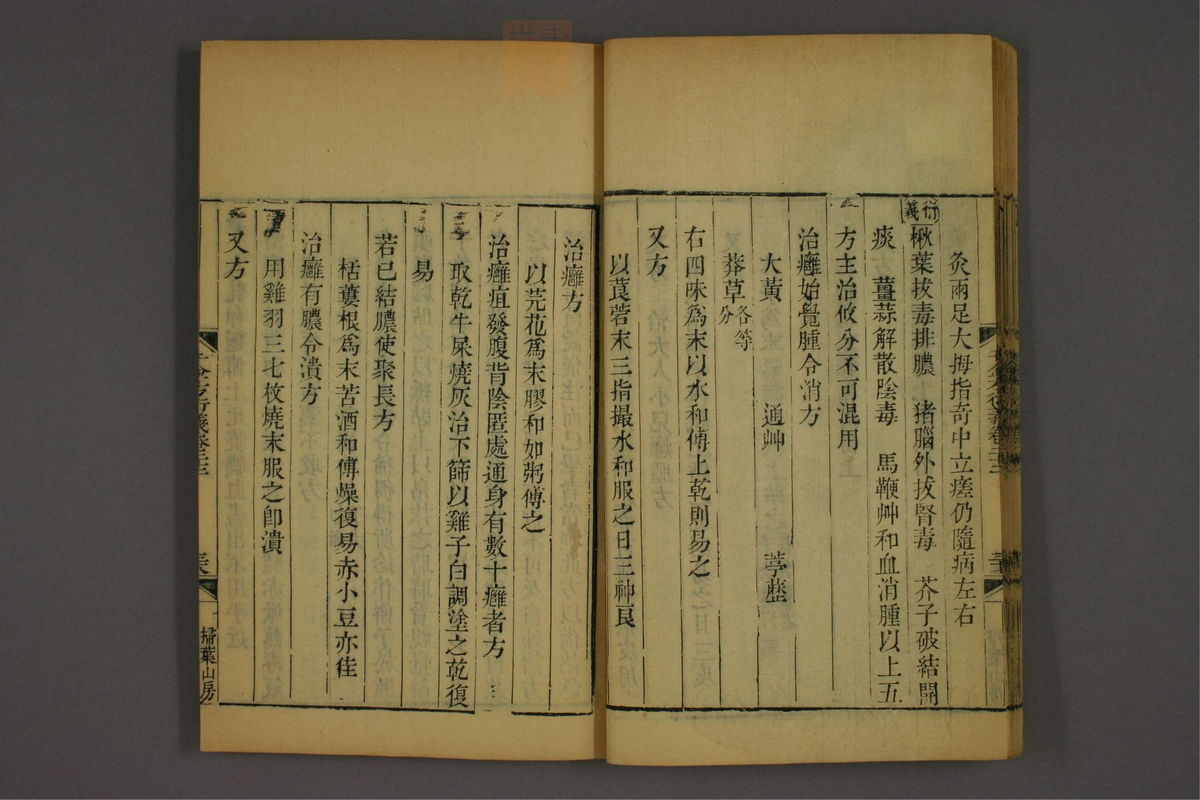 灸兩足大拇指奇中立瘥仍隨病左右
衍義
楸葉拔毒排膿　猪腦外拔腎毒　芥子破結開
痰　薑蒜解散陰毒　馬鞭艸和血消腫以上五
方主治攸分不可混用
治癰始覺腫令消方
大黃　通艸　葶藶
莽草各等分
右四味爲末以水和傅上乾則易之
又方
以莨菪末三指撮水和服之日三神良
治癰方
以芫花爲末膠和如粥傅之
治癰疽發腹背陰匿處通身有數十癰者方
取乾牛屎燒灰治下篩以雞子白調塗之乾復
易
若已結膿使聚長方
栝蔞根爲末苦酒和傅燥復易赤小豆亦佳
治癰有膿令潰方
用雞羽三七枚燒末服之卽潰
又方
千金方衍義卷二十二
掃葉山房